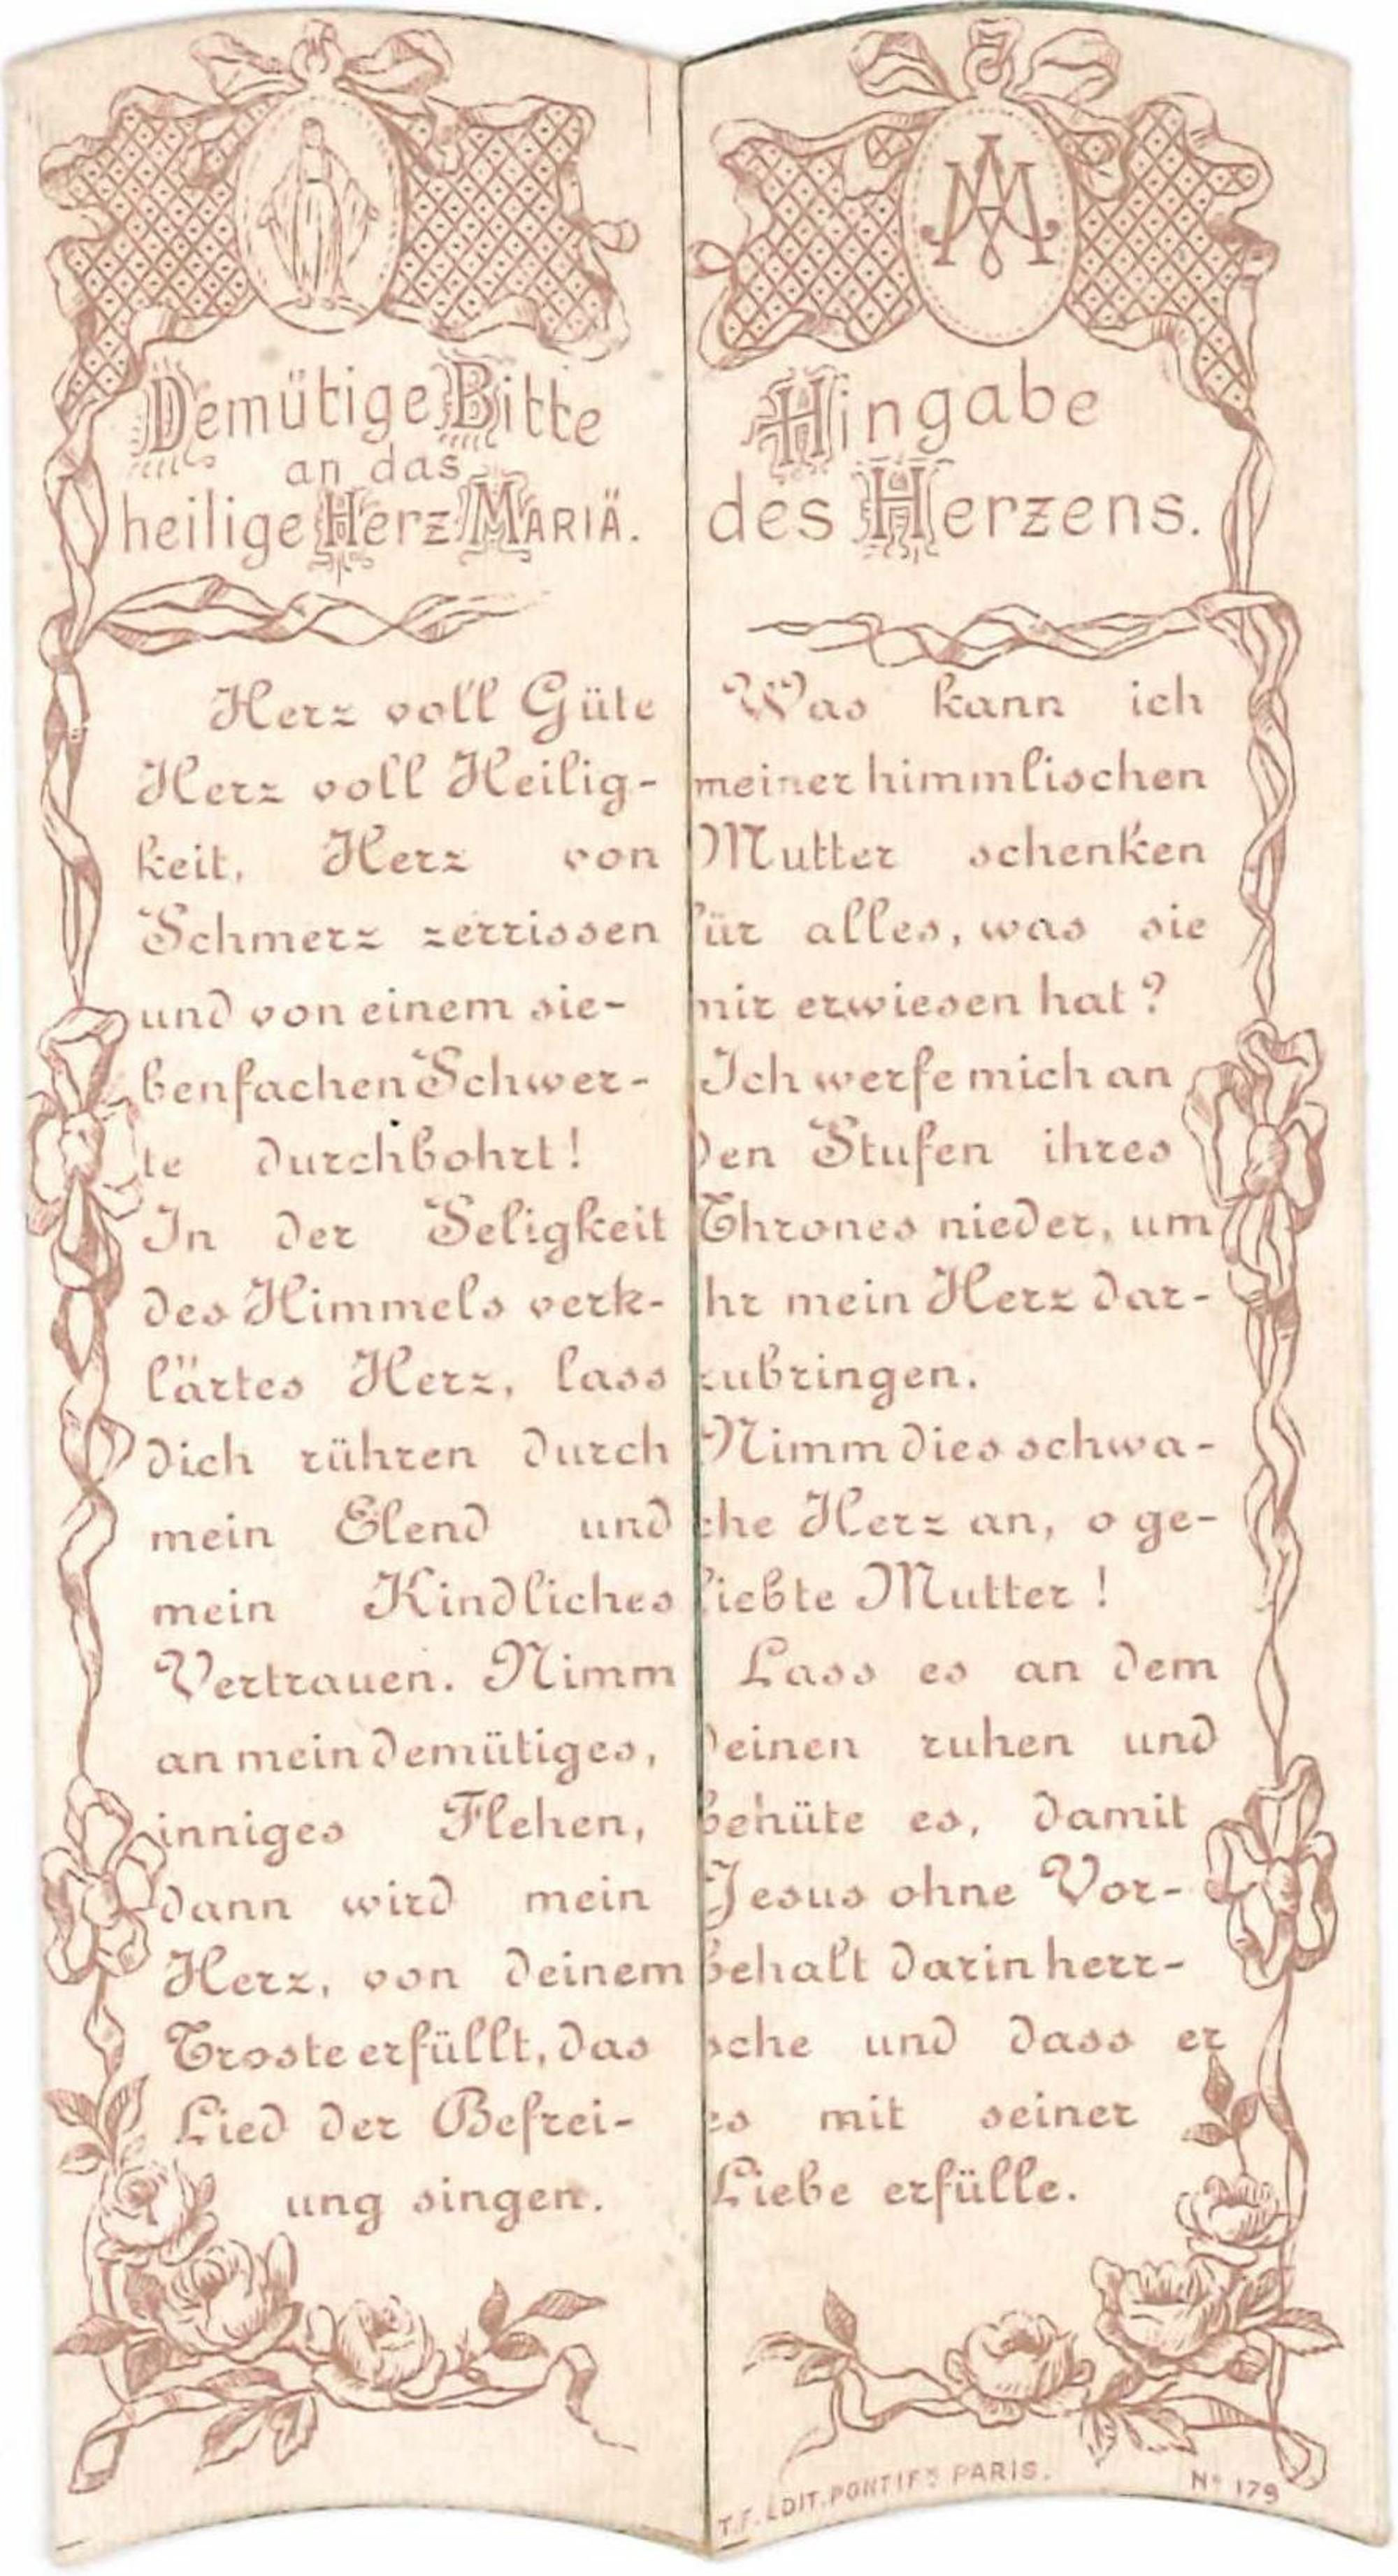 Demütige Bitte
an das
heilige Herz MARIÄ.
Herz voll Güte
Herz voll Heilig-
keit, Herz von
Schmerz zerrissen
und von einem sie-
benfachen Schwer-
te durchbohrt!
In der Seligkeit
des Himmels verk-
lärtes Herz, lass
dich rühren durch
mein Elend und
mein Kindliches
Vertrauen. Nimm
an mein demütiges,
inniges Flehen,
dann wird mein
Herz, von deinem
Troste erfüllt, das
Lied der Befrei-
ung singen.
Hingabe
des Herzens.
Was kann ich
meiner himmlischen
Mutter schenken
für alles, was sie
mir erwiesen hat?
Ich werfe mich an
den Stufen ihres
Thrones nieder, um
ihr mein Herz dar-
zubringen.
Nimm dies schwa-
che Herz an, o ge-
liebte Mutter!
Lass es an dem
deinen ruhen und
behüte es, damit
Jesus ohne Vor-
behalt darin herr-
sche und dass er
es mit seiner
Liebe erfülle.
T.F. EDIT. PONTIFS PARIS.
No 179